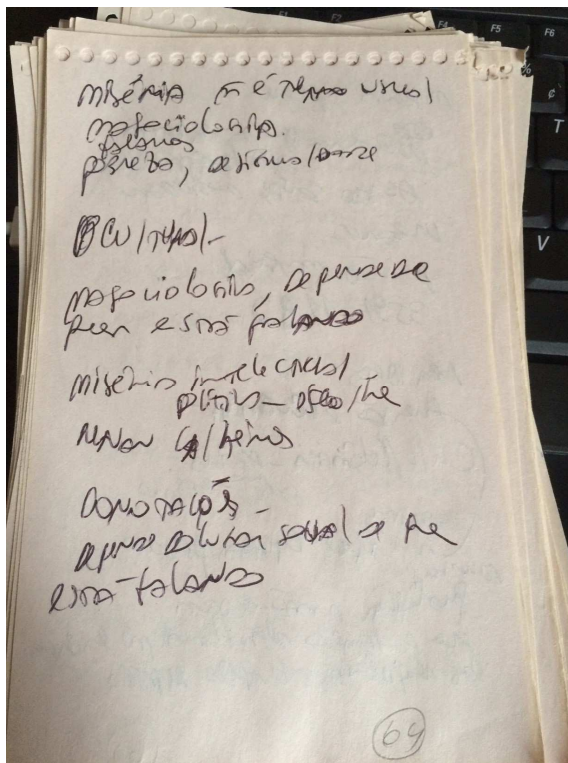 miséria ñ é termo usual
na sociologia.
falamos
pobreza, desigualdade
cultural-
na sociologia, depende de
quem está falando
miséria intelectual
Renan Calheiros
conotação -
depende do lugar social de que
está falando
64
F4
F5
F6
%
¢
T
V